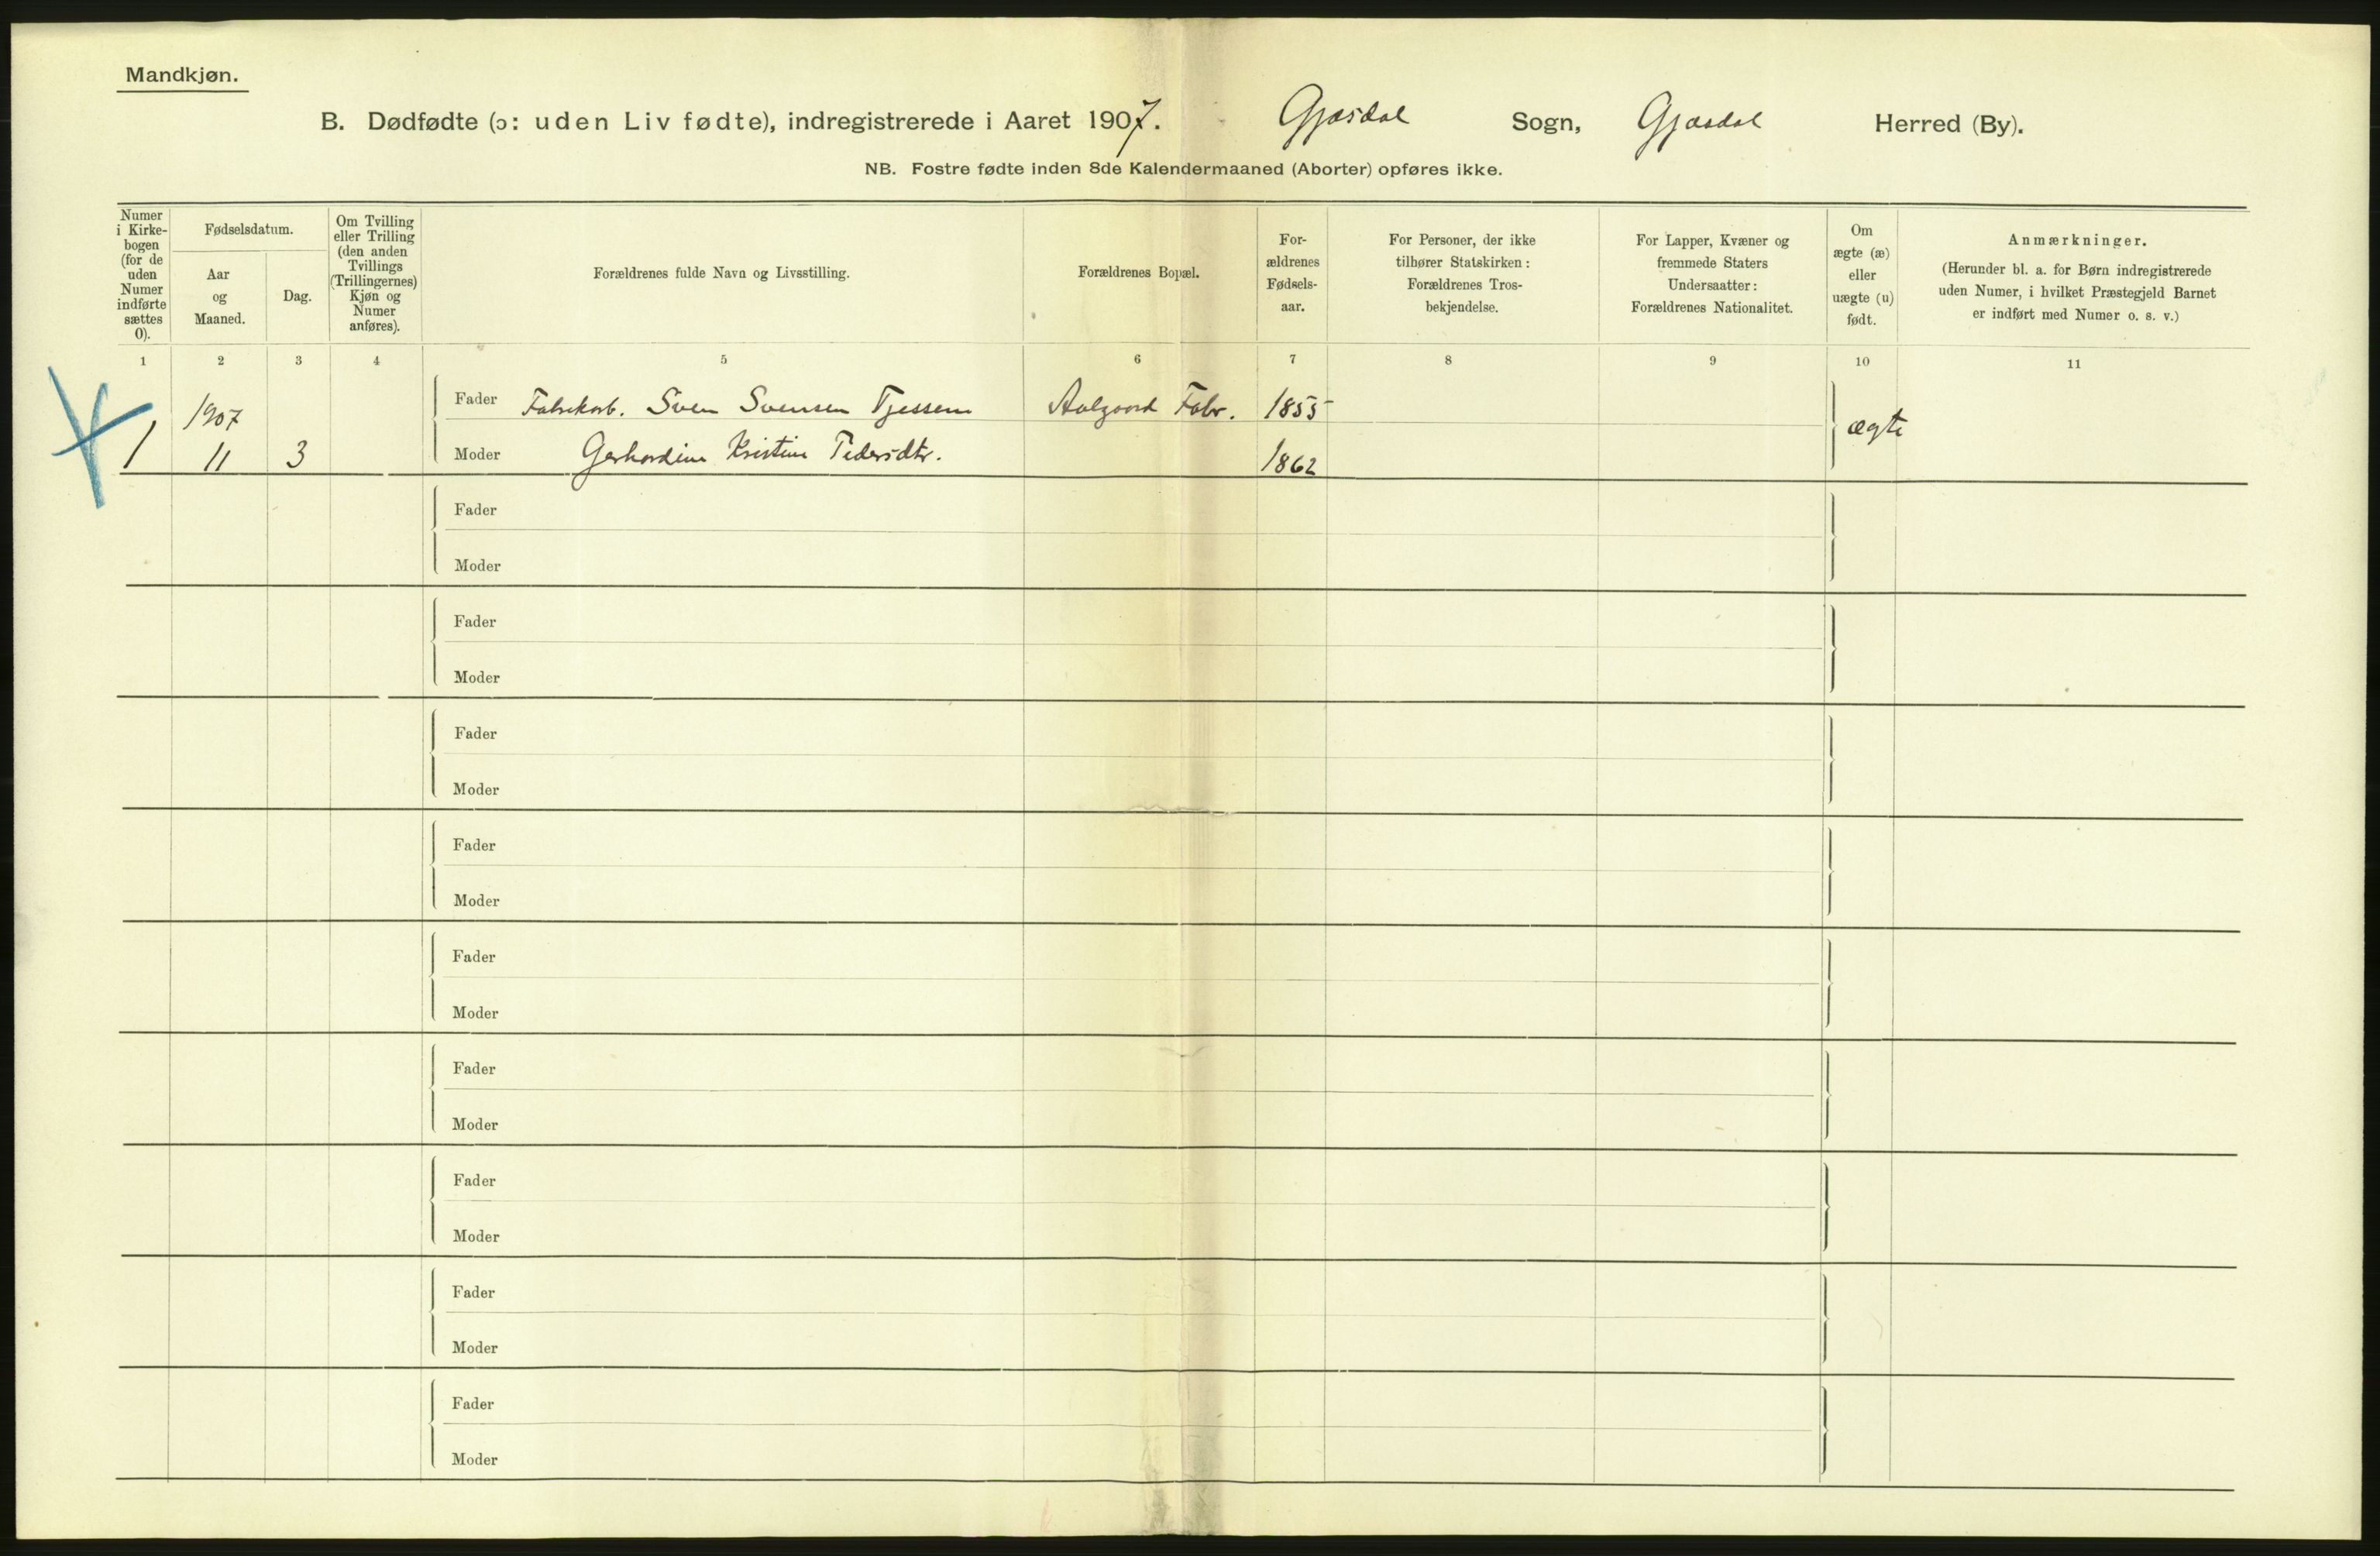 Mandkjøn.
B. Dødfødte (ɔ: uden Liv fødte), indregistrerede i Aaret 1907. Gjæsdal Sogn, Gjæsdal Herred (By).
NB. Fostre fødte inden 8de Kalendermaaned (Aborter) opføres ikke.
Numer
i Kirke-
bogen
(for de
uden
Numer
indførte
sættes
0).
Fødselsdatum.
Aar
og
Maaned.
Dag.
Om Tvilling
eller Trilling
(den anden
Tvillings
(Trillingernes)
Kjøn og
Numer
anføres).
Forældrenes fulde Navn og Livsstilling.
Forældrenes Bopæl.
For-
ældrenes
Fødsels-
aar.
For Personer, der ikke
tilhører Statskirken:
Forældrenes Tros-
bekjendelse.
For Lapper, Kvæner og
fremmede Staters
Undersaatter:
Forældrenes Nationalitet.
Om
ægte (æ)
eller
uægte (u)
født.
Anmærkninger.
(Herunder bl. a. for Børn indregistrerede
uden Numer, i hvilket Præstegjeld Barnet
er indført med Numer o. s. v.)
1 2 3 4 5 6 7 8 9 10 11
1907 Fader Fabrikarb. Sven Svensen Tjessem Aalgaard Fabr. 1855 ægte
1 11 3 Moder Gerhardine Kristine Pedersdtr. 1862
Fader
Moder
Fader
Moder
Fader
Moder
Fader
Moder
Fader
Moder
Fader
Moder
Fader
Moder
Fader
Moder
Fader
Moder